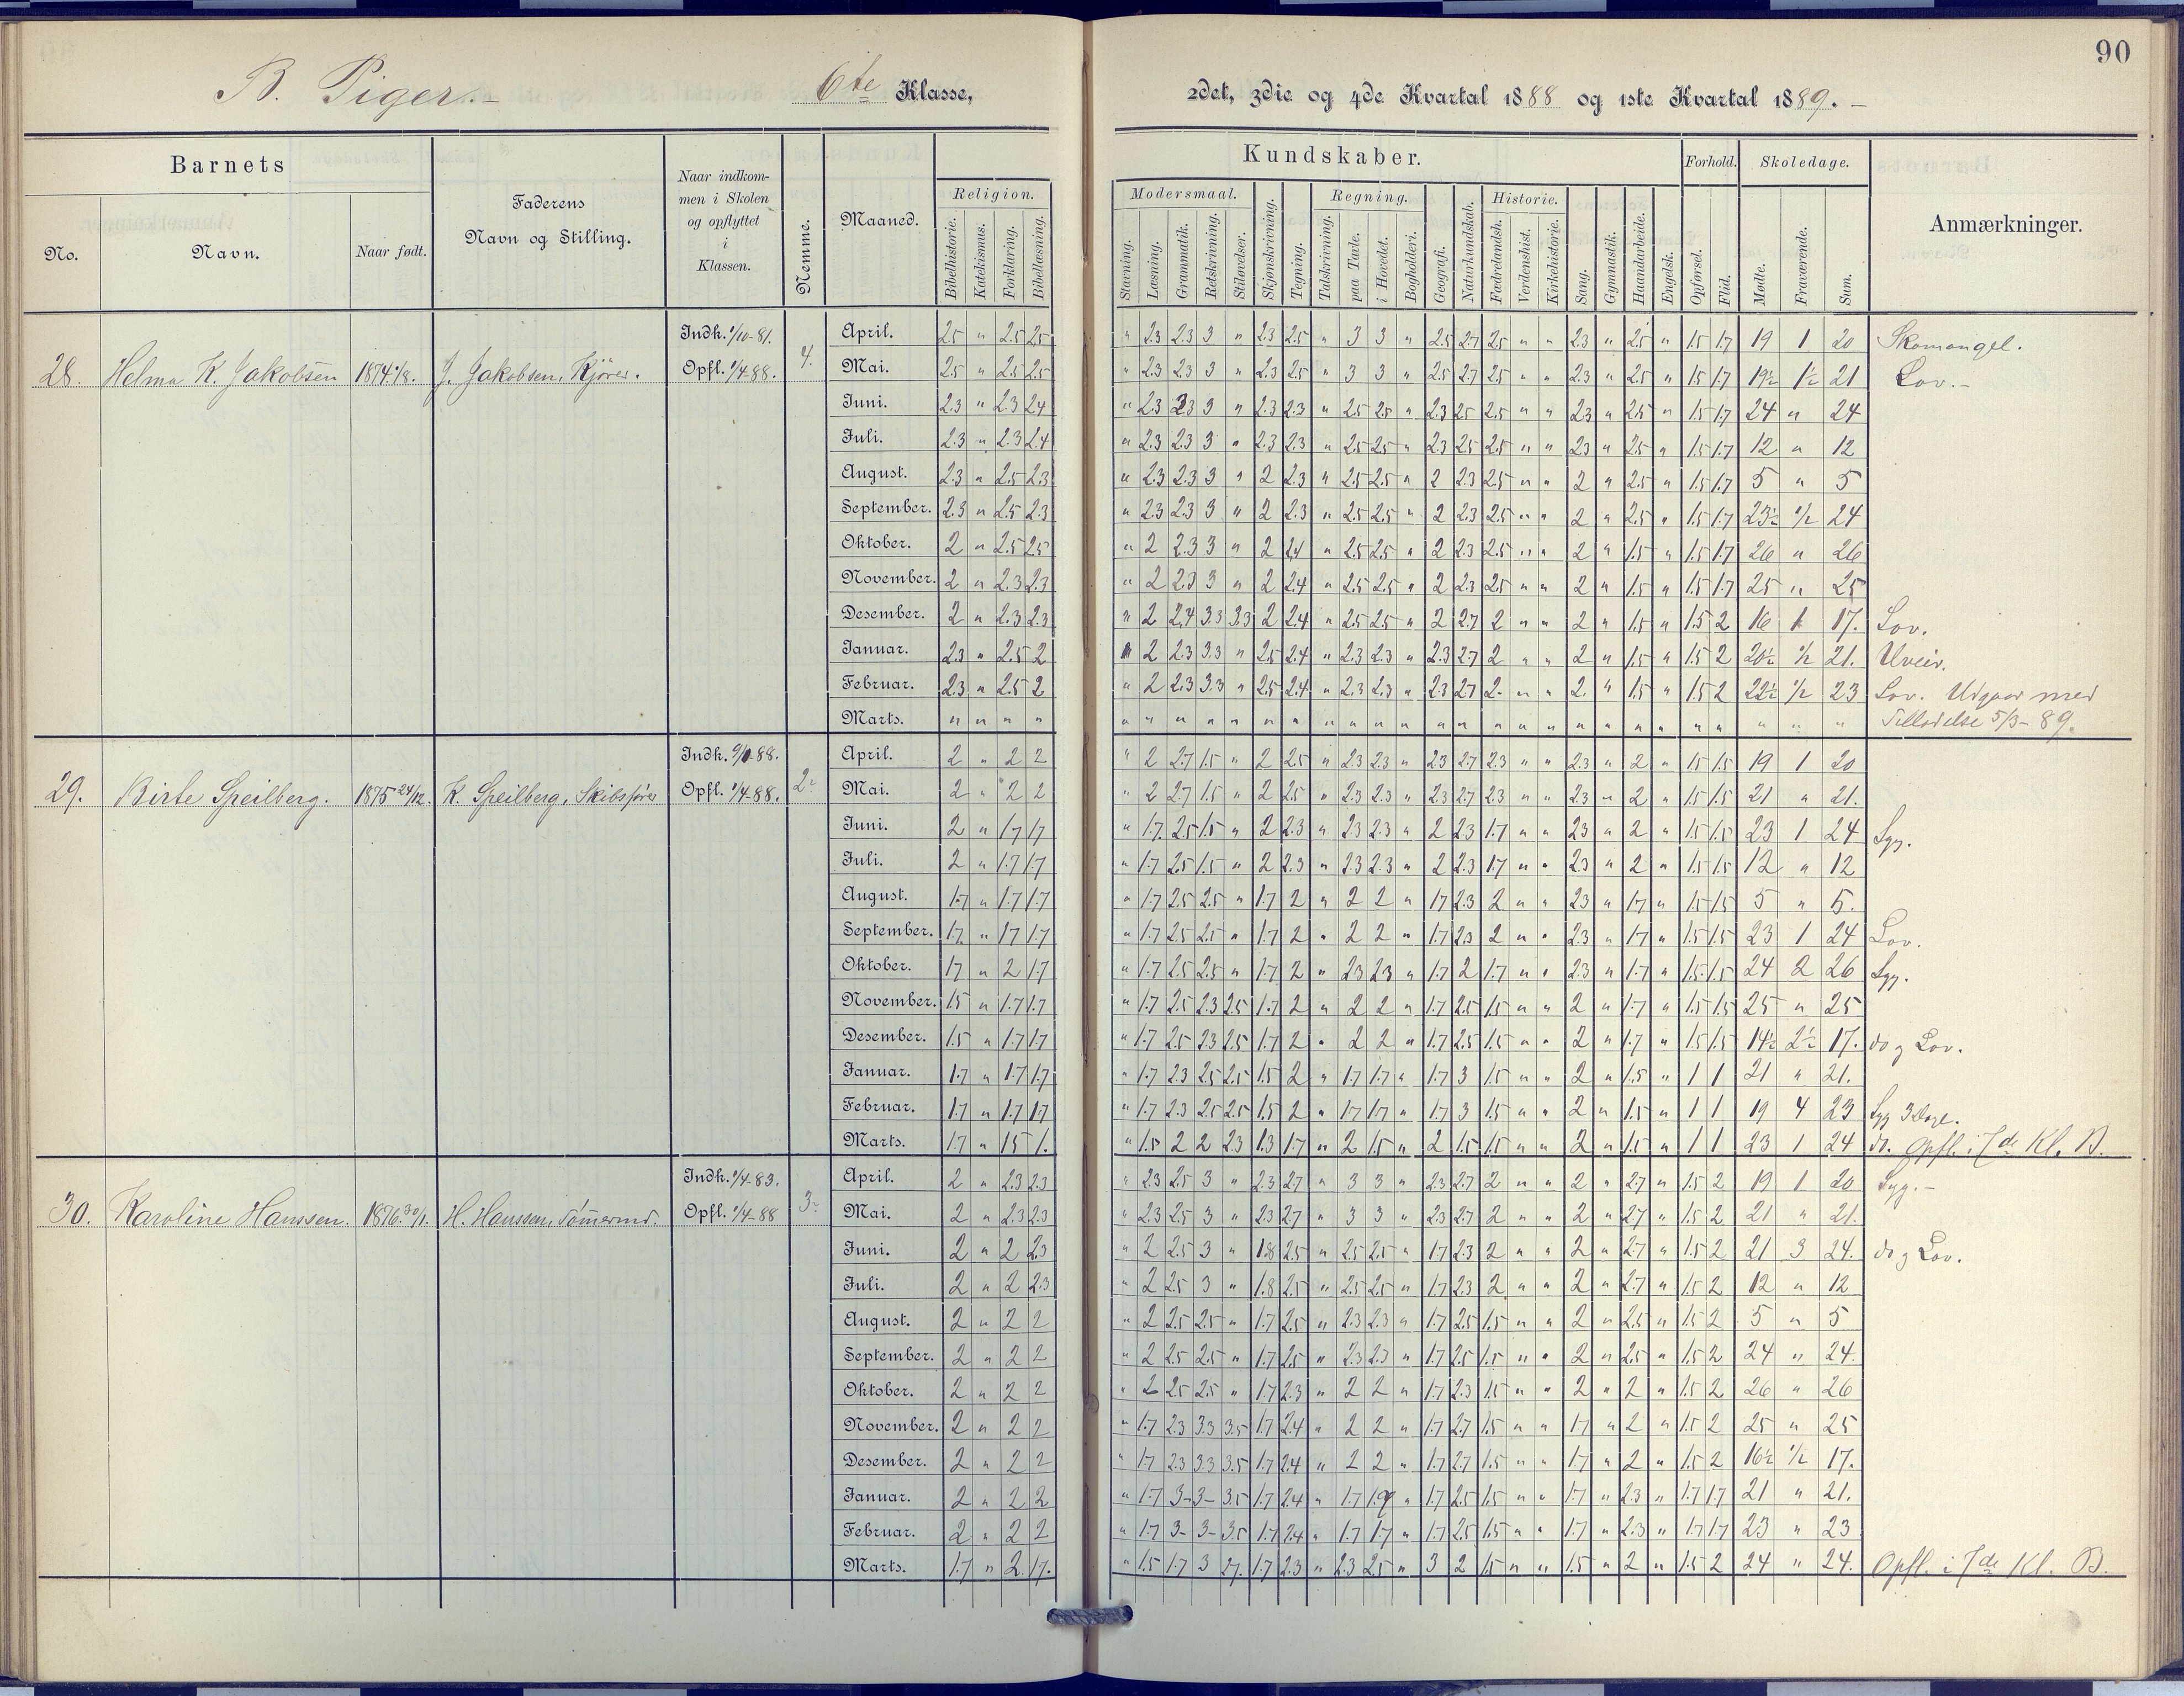 90
B. Piger.-
6te Klasse,
2det, 3die og 4de Kvartal 1888 og 1ste Kvartal 1889. -
Barnets
Faderens
Navn og Stilling.
Naar indkom-
men i Skolen
og opflyttet
i
Klassen.
Nemme.
Maaned.
Kundskaber.
Forhold.
Skoledage.
Anmærkninger.
No.
Navn.
Naar født.
Religion.
Bibelhistorie. Katekismus. Forklaring. Bibellæsning.
Modersmaal.
Stavning. Læsning. Grammatik. Retskrivning. Stiløvelser.
Skjønskrivning.
Tegning.
Regning.
Talskrivning. paa Tavle. i Hovedet. Bogholderi.
Geografi.
Naturkundskab.
Historie.
Fædrelandsh. Verdenshist. Kirkehistorie.
Sang.
Gymnastik.
Haandarbeide.
Engelsk.
Opførsel. Flid.
Mødte. Fraværende. Sum.
28. Helma K. Jakobsen 1874 J. Jakobsen, Kjører. Indk. 1/10-81. Opfl. 1/4-88. 4.
April. 2.5 " 2.5 2.5 " 2.3 2.3 3 " 2.3 2.5 " 3 3 " 2.5 2.7 2.5 " " 2.3 " 2.5 " 1.5 1.7 19 1 20 Skomangel.
Mai. 2.5 " 2.5 2.5 " 2.3 2.3 3 " 2.3 2.5 " 3 3 " 2.5 2.7 2.5 " " 2.3 " 2.5 " 1.5 1.7 19½ 1½ 21 Lov.-
Juni. 2.3 " 2.3 2.4 " 2.3 2.3 3 " 2.3 2.3 " 2.5 2.5 " 2.3 2.5 2.5 " " 2.3 " 2.5 " 1.5 1.7 24 " 24
Juli. 2.3 " 2.3 2.4 " 2.3 2.3 3 " 2.3 2.3 " 2.5 2.5 " 2.3 2.5 2.5 " " 2.3 " 2.5 " 1.5 1.7 12 " 12
August. 2.3 " 2.5 2.3 " 2.3 2.3 3 " 2 2.3 " 2.5 2.5 " 2 2.3 2.5 " " 2 " 2.5 " 1.5 1.7 5 " 5
September. 2.3 " 2.5 2.3 " 2.3 2.3 3 " 2 2.3 " 2.5 2.5 " 2 2.3 2.5 " " 2 " 2.5 " 1.5 1.7 23½ ½ 24
Oktober. 2 " 2.5 2.5 " 2 2.3 3 " 2 2.4 " 2.5 2.5 " 2 2.3 2.5 " " 2 " 1.5 " 1.5 1.7 26 " 26
November. 2 " 2.3 2.3 " 2 2.3 3 " 2 2.4 " 2.5 2.5 " 2 2.3 2.5 " " 2 " 1.5 " 1.5 1.7 25 " 25
Desember. 2 " 2.3 2.3 " 2 2.4 3.3 3.3 2 2.4 " 2.5 2.5 " 2 2.7 2 " " 2 " 1.5 " 1.5 2 16 1 17. Lov.
Januar. 2.3 " 2.5 2 " 2 2.3 3.3 " 2.5 2.4 " 2.3 2.3 " 2.3 2.7 2 " " 2 " 1.5 " 1.5 2 20½ ½ 21. Uveir.
Februar. 2.3 " 2.5 2 " 2 2.3 3.3 " 2.5 2.4 " 2.3 2.3 " 2.3 2.7 2 " " 2 " 1.5 " 1.5 2 22½ ½ 23 Lov. Udgaar med
Marts. " " " " " " " " " " " " " " " " " " " " " " " " " " " " " Tilladelse 5/3-89.
29. Birte Speilberg. 1875 24/12. K. Speilberg, Skibsfører Indk. -88. Opfl. 1/4-88. 2-
April. 2 " 2 2 " 2 2.7 1.5 " 2 2.5 " 2.3 2.3 " 2.3 2.7 2.3 " " 2.3 " 2 " 1.5 1.5 19 1 20
Mai. 2 " 2 2 " 2 2.7 1.5 " 2 2.5 " 2.3 2.3 " 2.3 2.7 2.3 " " 2.3 " 2 " 1.5 1.5 21 " 21.
Juni. 2 " 1.7 1.7 " 1.7 2.5 1.5 " 2 2.3 " 2.3 2.3 " 2 2.3 1.7 " " 2.3 " 2 " 1.5 1.5 23 1 24 Syg.
Juli. 2 " 1.7 1.7 " 1.7 2.5 1.5 " 2 2.3 " 2.3 2.3 " 2 2.3 1.7 " " 2.3 " 2 " 1.5 1.5 12 " 12
August. 1.7 " 1.7 1.7 " 1.7 2.5 2.5 " 1.7 2 " 2 2 " 1.7 2.3 2 " " 2.3 " 1.7 " 1.5 1.5 5 " 5.
September. 1.7 " 1.7 1.7 " 1.7 2.5 2.5 " 1.7 2 " 2 2 " 1.7 2.3 2 " " 2.3 " 1.7 " 1.5 1.5 23 1 24 Lov.
Oktober. 1.7 " 2 1.7 " 1.7 2.5 2.5 " 1.7 2 " 2.3 2.3 " 1.7 2 1.7 " " 2.3 " 1.7 " 1.5 1.5 24 2 26 Syg.
November. 1.5 " 1.7 1.7 " 1.7 2.5 2.3 2.5 1.7 2 " 2 2 " 1.7 2.5 1.5 " " 2 " 1.7 " 1.5 1.5 25 " 25
Desember. 1.5 " 1.7 1.7 " 1.7 2.5 2.3 2.5 1.7 2 " 2 2 " 1.7 2.5 1.5 " " 2 " 1.7 " 1.5 1.5 14½ 2½ 17. do og Lov.
Januar. 1.7 " 1.7 1.7 " 1.7 2.3 2.5 2.5 1.5 2 " 1.7 1.7 " 1.7 3 1.5 " " 2 " 1.5 " 1 1 21 " 21.
Februar. 1.7 " 1.7 1.7 " 1.7 2.3 2.5 2.5 1.5 2 " 1.7 1.7 " 1.7 3 1.5 " " 2 " 1.5 " 1 1 19 4 23 Syg 3 Dage.
Marts. 1.7 " 1.5 1. " 1.5 2 2 2.3 1.3 1.7 " 2 1.5 " 2 1.5 1.5 " " 2 " 1.5 " 1 1 23 1 24 do. Opfl. i 7de Kl. B.
30. Karoline Hanssen. 1876. 30/1. H. Hanssen, Tømmermd. Indk. 1/4-83. Opfl. 1/4-88 3-
April. 2 " 2.3 2.3 " 2.3 2.5 3 " 2.3 2.7 " 3 3 " 2.3 2.7 2 " " 2 " 2.7 " 1.5 2 19 1 20 Syg.-
Mai. 2 " 2.3 2.3 " 2.3 2.5 3 " 2.3 2.7 " 3 3 " 2.3 2.7 2 " " 2 " 2.7 " 1.5 2 21 " 21.
Juni. 2 " 2 2.3 " 2 2.5 3 " 1.8 2.5 " 2.5 2.5 " 1.7 2.3 2 " " 2 " 2.7 " 1.5 2 21 3 24. do og Lov.
Juli. 2 " 2 2.3 " 2 2.5 3 " 1.8 2.5 " 2.5 2.5 " 1.7 2.3 2 " " 2 " 2.7 " 1.5 2 12 " 12
August. 2 " 2 2 " 2 2.5 2.5 " 1.7 2.5 " 2.3 2.3 " 1.7 2.5 1.5 " " 2 " 2.5 " 1.5 2 5 " 5
September. 2 " 2 2 " 2 2.5 2.5 " 1.7 2.5 " 2.3 2.3 " 1.7 2.5 1.5 " " 2 " 2.5 " 1.5 2 24 " 24.
Oktober. 2 " 2 2 " 2 2.5 2.5 " 1.7 2.3 " 2 2 " 1.7 2.3 1.5 " " 2 " 2 " 1.5 2 26 " 26
November. 2 " 2 2 " 1.7 2.3 3.3 3.5 1.7 2.4 " 2 2 " 1.7 2.7 1.5 " " 1.7 " 2 " 1.5 2 25 " 25
Desember. 2 " 2 2 " 1.7 2.3 3.3 3.5 1.7 2.4 " 2 2 " 1.7 2.7 1.5 " " 1.7 " 2 " 1.5 2 16½ ½ 17.
Januar. 2 " 2 2 " 1.7 3- 3- 3.5 1.7 2.4 " 1.7 1.7 " 1.7 2.5 1.5 " " 1.7 " 2.3 " 1.7 1.7 21 " 21.
Februar. 2 " 2 2 " 1.7 3- 3- 3.5 1.7 2.4 " 1.7 1.7 " 1.7 2.5 1.5 " " 1.7 " 2.3 " 1.7 1.7 23 " 23
Marts. 1.7 " 2. 1.7. " 1.5 1.7 3 2.7. 1.7 2.3 " 2.3 2.5 " 3 2 1.5 " " 1.5 " 2 " 1.5 2 24 " 24. Opfl. i 7de Kl. B.